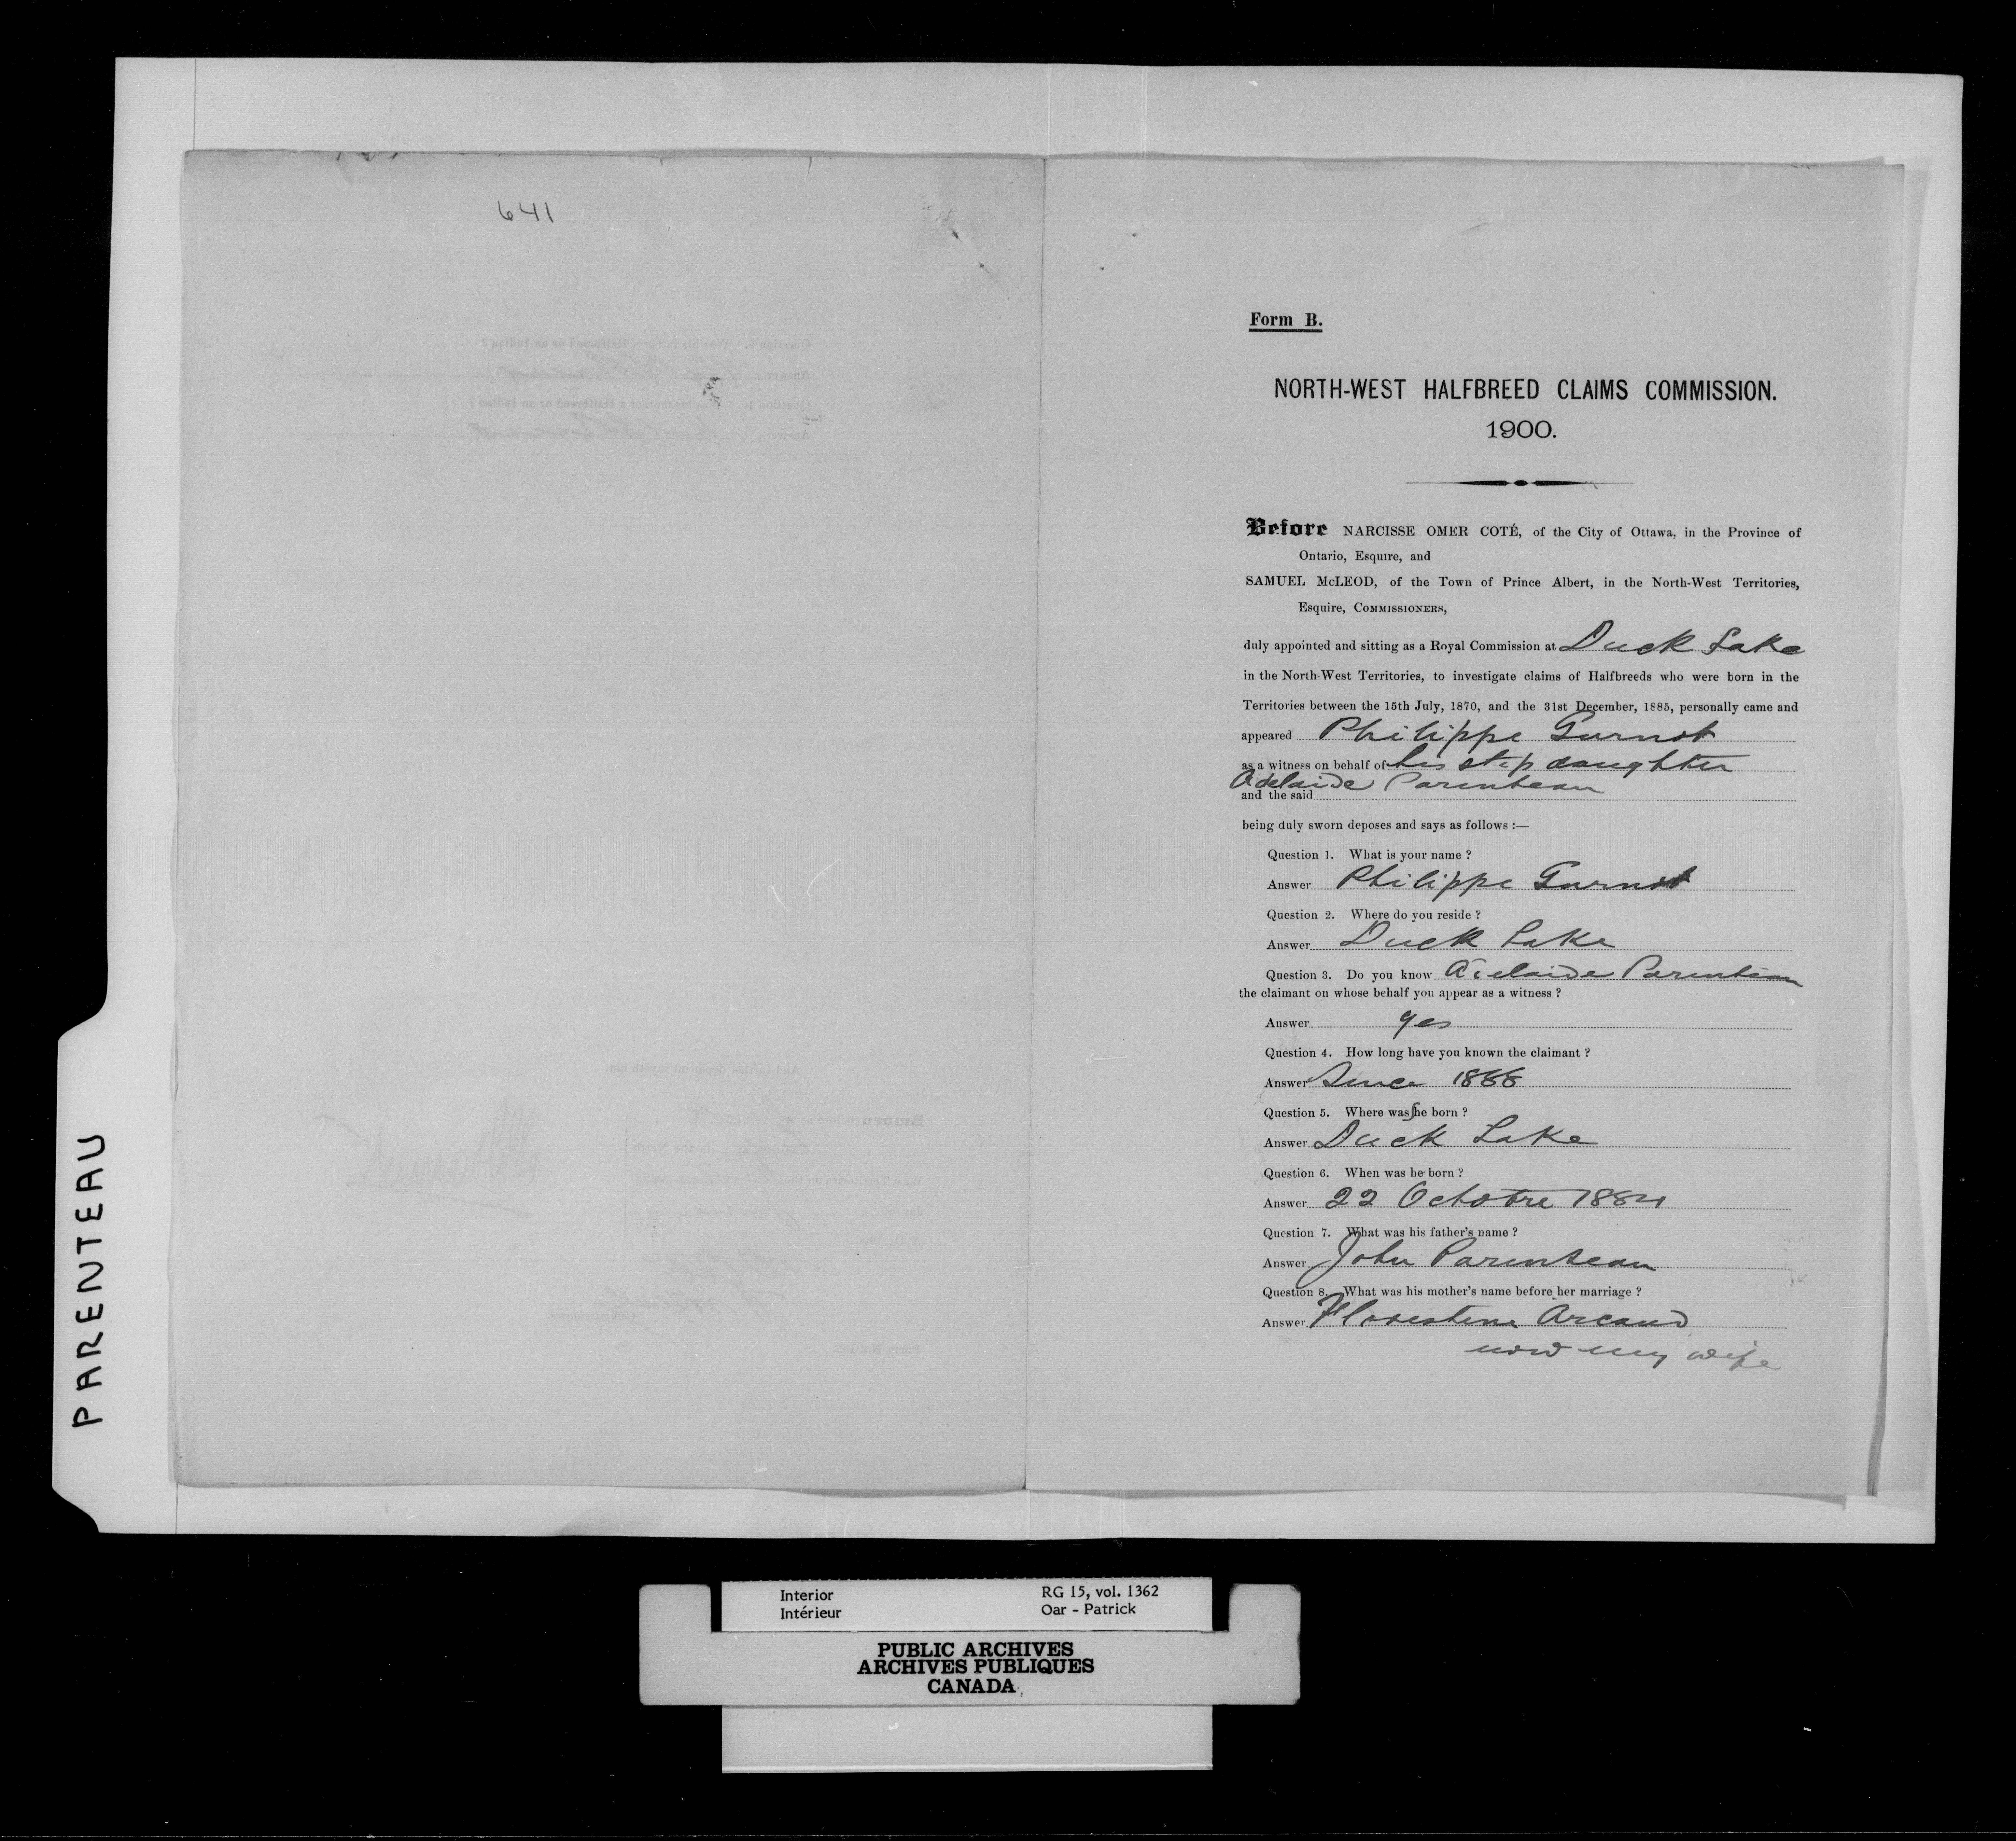 641
PARENTEAU
Form B.
NORTH-WEST HALFBREED CLAIMS COMMISSION.
1900.
Before NARCISSE OMER COTÉ, of the City of Ottawa, in the Province of
Ontario, Esquire, and
SAMUEL McLEOD, of the Town of Prince Albert, in the North-West Territories,
Esquire, COMMISSIONERS,
duly appointed and sitting as a Royal Commission at Duck Lake
in the North-West Territories, to investigate claims of Halfbreeds who were born in the
Territories between the 15th July, 1870, and the 31st December, 1885, personally came and
appeared Philippe Garnot
as a witness on behalf of his step daughter
Adelaide Parenteau
and the said
being duly sworn deposes and says as follows :—
Question 1. What is your name ?
Answer Philippe Garnot
Question 2. Where do you reside ?
Answer Duck Lake
Question 3. Do you know Adelaide Parenteau
the claimant on whose behalf you appear as a witness ?
Answer yes
Question 4. How long have you known the claimant ?
Answer Since 1888
Question 5. Where was she born ?
Answer Duck Lake
Question 6. When was he born ?
Answer 22 Octobre 1884
Question 7. What was his father's name ?
Answer John Parenteau
Question 8. What was his mother's name before her marriage ?
Answer Florestine Arcand
now my wife
Interior RG 15, vol. 1362
Intérieur Oar - Patrick
PUBLIC ARCHIVES
ARCHIVES PUBLIQUES
CANADA